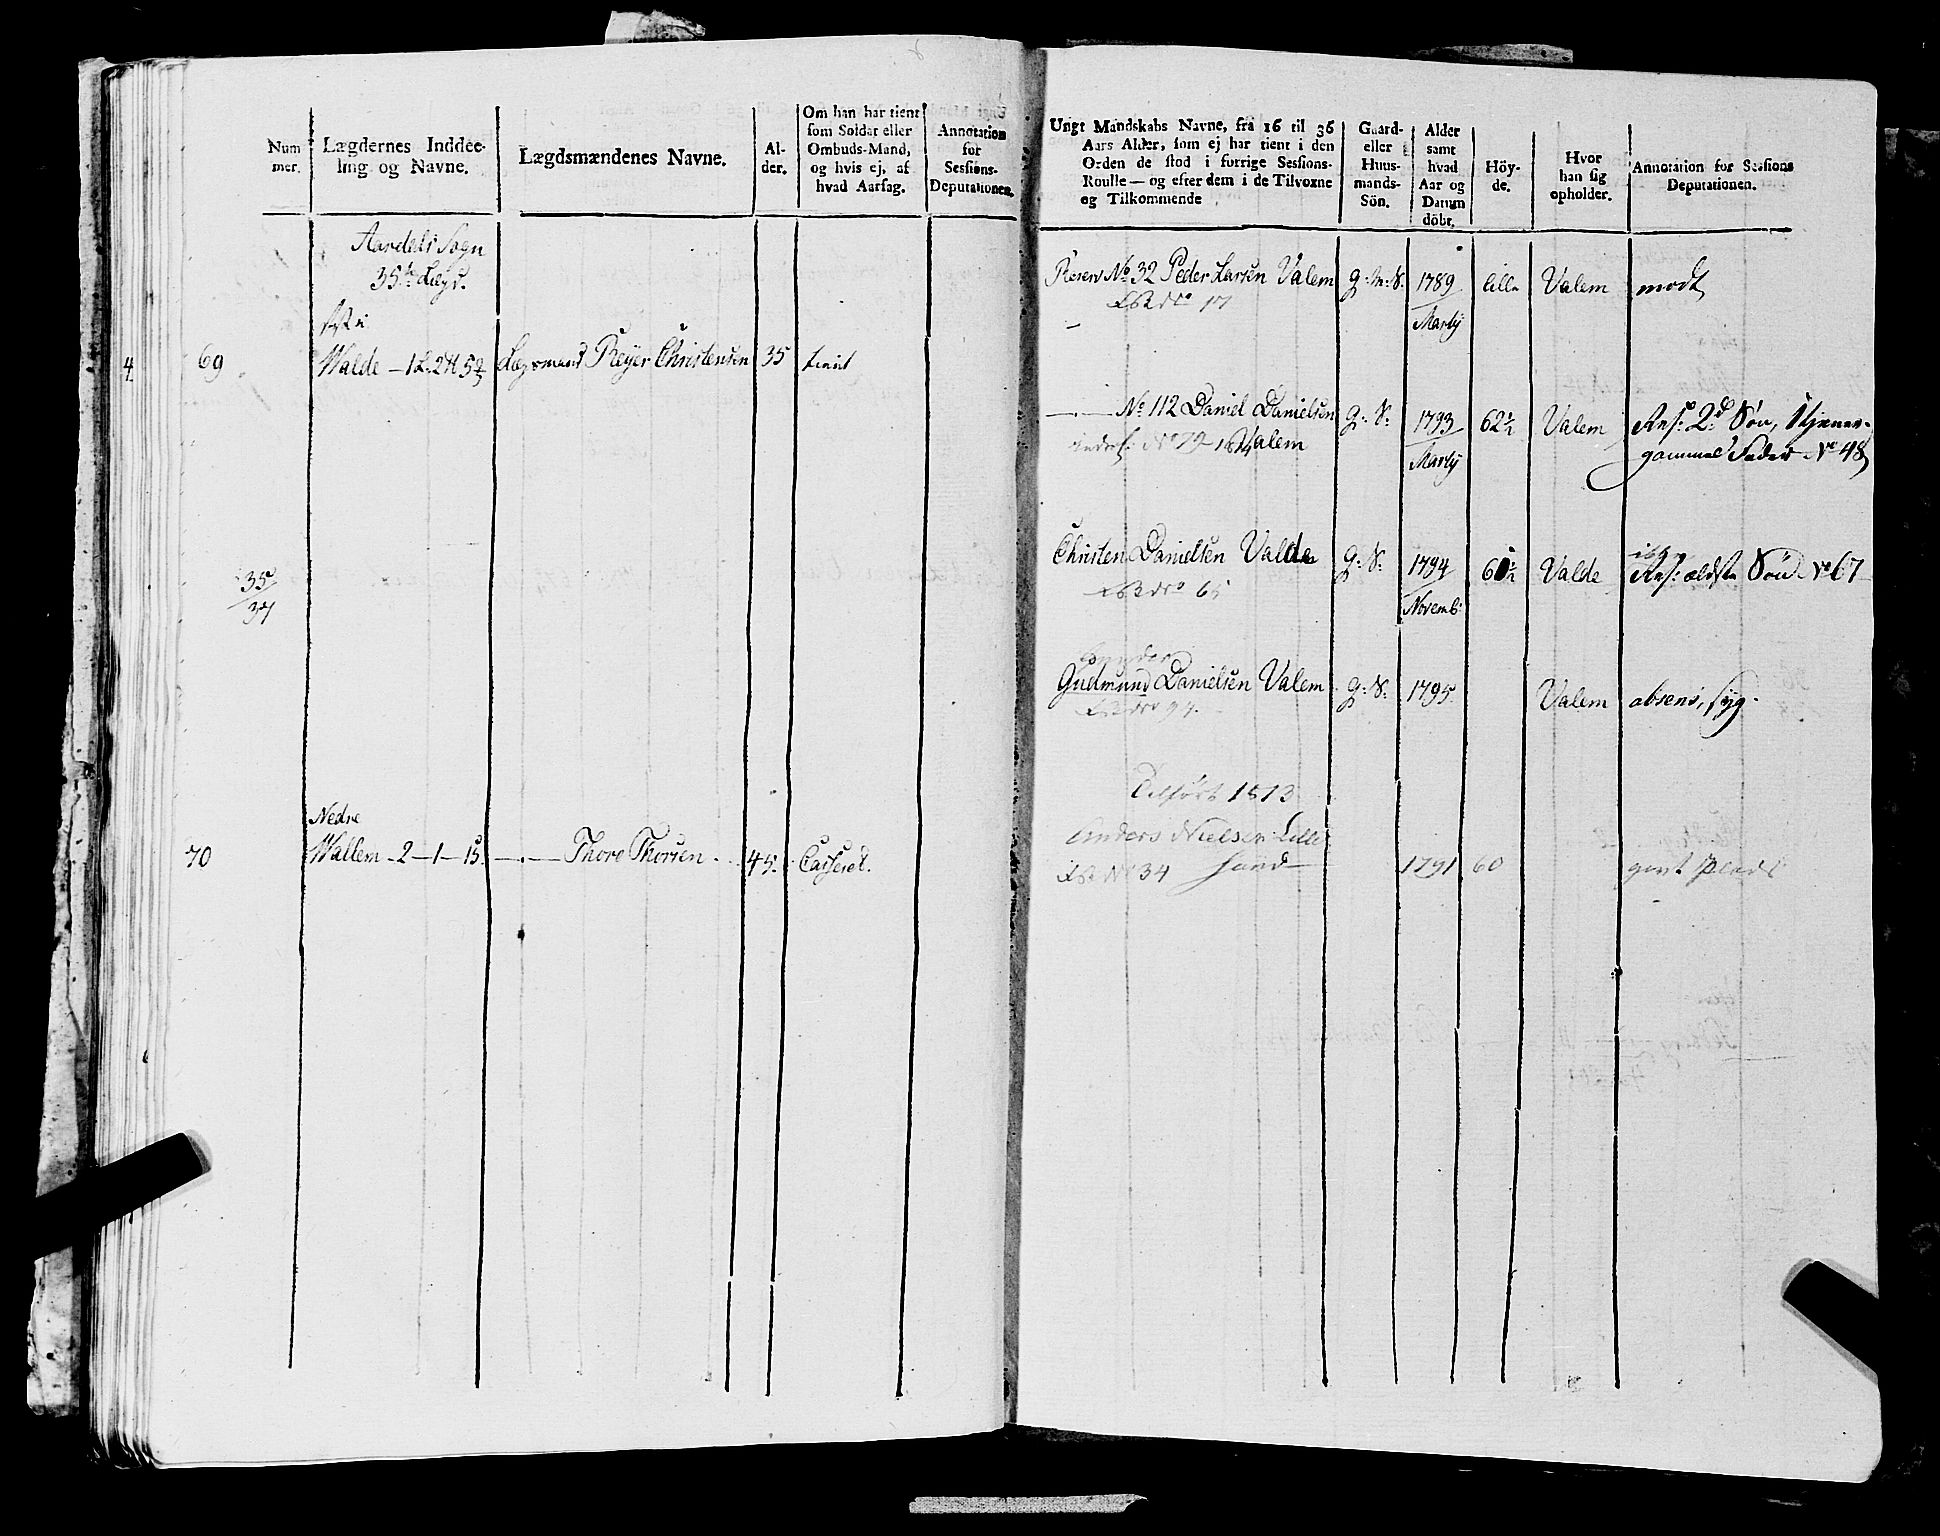 Num
mer.
Lægdernes Inddee-
ling og Navne.
Lægdsmændenes Navne.
Al-
der.
Om han har tient
som Soldat eller
Ombuds-Mand,
og hvis ej, af
hvad Aarsag.
Annotation
for
Sessions-
Deputationen.
Aardals Sogn
35te Lægd.
4
69
Walde – 1 L. 2 H 5
Lægsmand Reyer Christensen
35
tient
35
37
70
Nedre
Wallem – 2 – 1 – 15.
Thore Thorsen
45.
Casseret.
Ungt Mandskabs Navne, fra 16 til 36
Aars Alder, som ej har tient i den
Orden de stod i forrige Sessions-
Roulle — og efter dem i de Tilvoxne
og Tilkommende
Gaard-
eller
Huus-
mands-
Sön.
Alder
samt
hvad
Aar og
Datum
döbt.
Höy-
de.
Hvor
han sig
opholder.
Annotation for Sessions
Deputationen.
Reserv No 32 Peder Larsen Valem
G: M: S.
1789
Martij
lille
Valem
mødt
No 17
No 112 Daniel Danielsen
Valem
G: S.
1793
Martij
62½
Valem
Ans: 2d Søn,
gammel Fader No 48
Christen Danielsen Valde
G: S.
1794
Novemb:
60½
Valde
Ans: ældste Søn No 67
No 65
Gudmund Danielsen Valem
G: S.
1795
Valem
absens, syg.
Tilført 1813
Anders Nielsen Lille
sand
No 34
1791
60